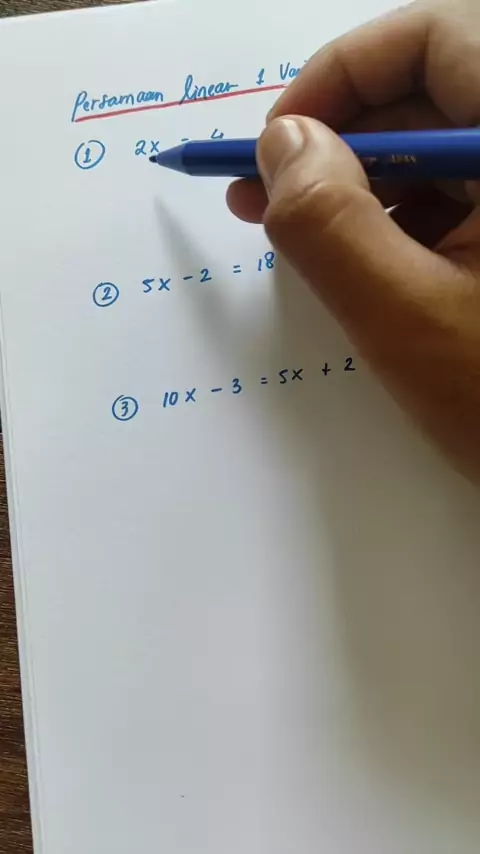 Persamaan linear 1
① 2x = 4
② 5x - 2 = 18
③ 10x - 3 = 5x + 2